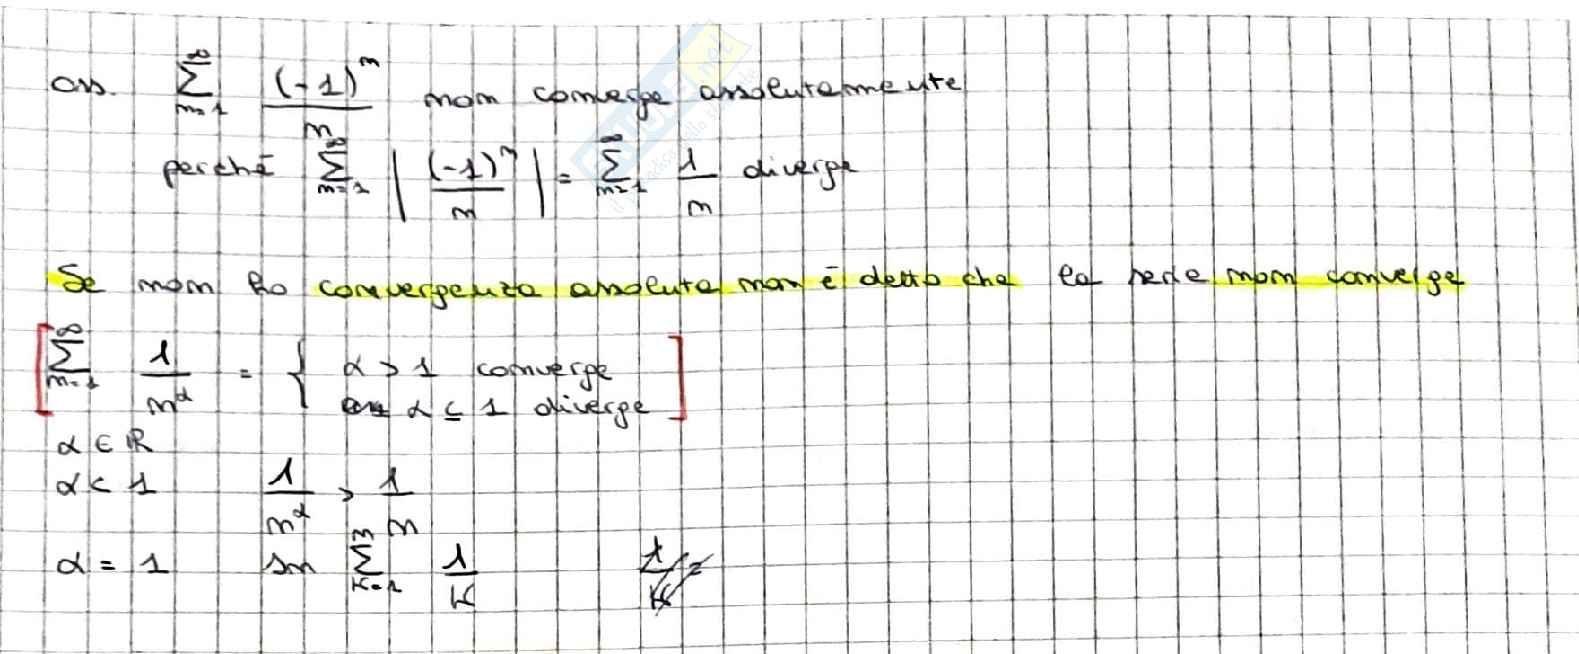 oss. ∑_{n=1}^{∞} (-1)^n / n non converge assolutamente
perché ∑_{n=1}^{∞} | (-1)^n / n | = ∑_{n=1}^{∞} 1/n diverge
Se non ho convergenza assoluta non è detto che la serie non converge
[ ∑_{n=1}^{∞} 1/n^α = { α > 1 converge
α ≤ 1 diverge ]
α ∈ ℝ
α < 1 1/n^α > 1/n
α = 1 sn ∑_{k=1}^{n} 1/k